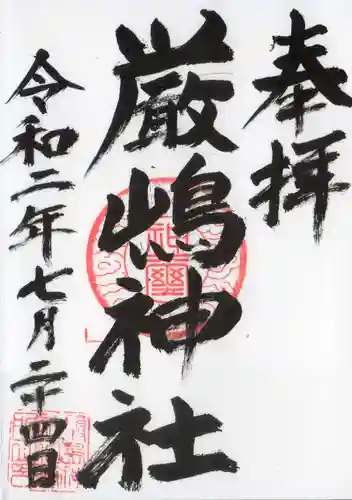 奉拝
厳嶋神社
令和二年七月二十四日